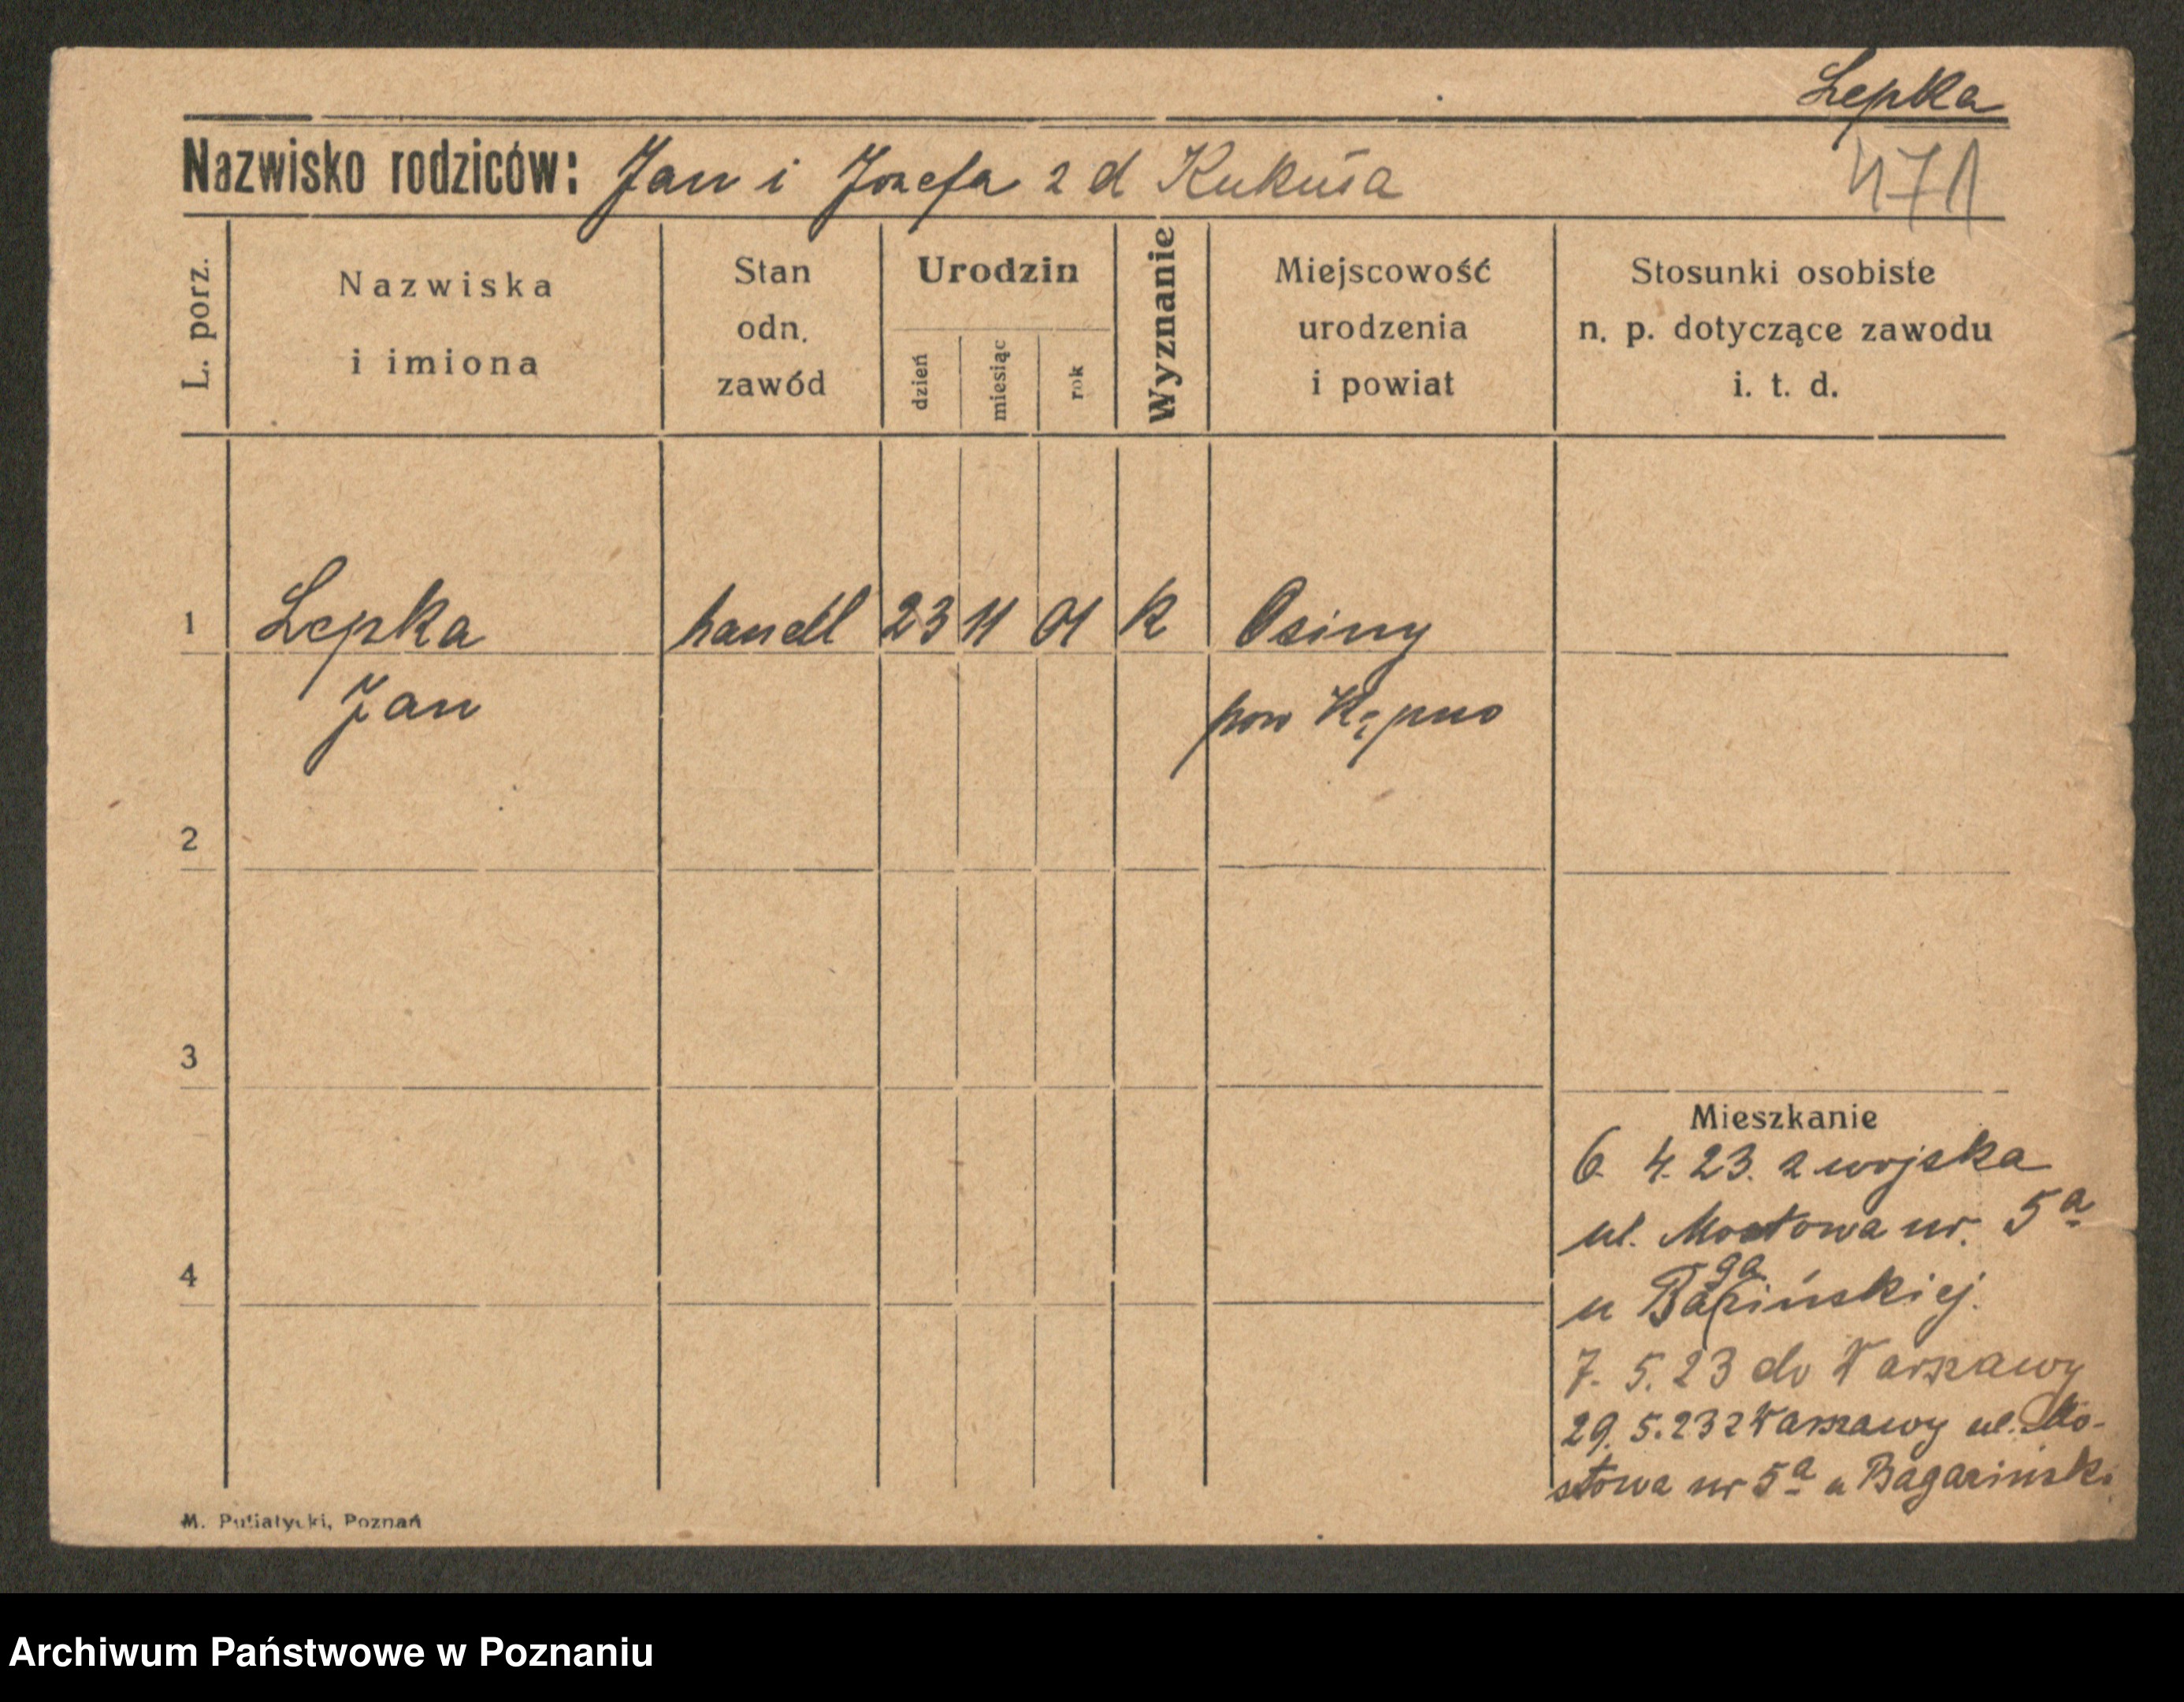 Lepka
Nazwisko rodziców: Jan i Józefa z d Kukuła
471
L. porz.
Nazwiska
i imiona
Stan
odn.
zawód
Urodzin
dzień
miesiąc
rok
Wyznanie
Miejscowość
urodzenia
i powiat
Stosunki osobiste
n. p. dotyczące zawodu
i. t. d.
1 Lepka handl 23 11 01 K Osiny
Jan pow Kępno
2
3
4
Mieszkanie
6. 4. 23. z wojska
ul. Mostowa nr. 5a
ga
u Bazińskiej.
7. 5. 23 do Warszawy
29. 5. 23 z Warszawy ul. Mo-
stowa nr 5a u Bagazinski
M. Putiatycki, Poznań
Archiwum Państwowe w Poznaniu